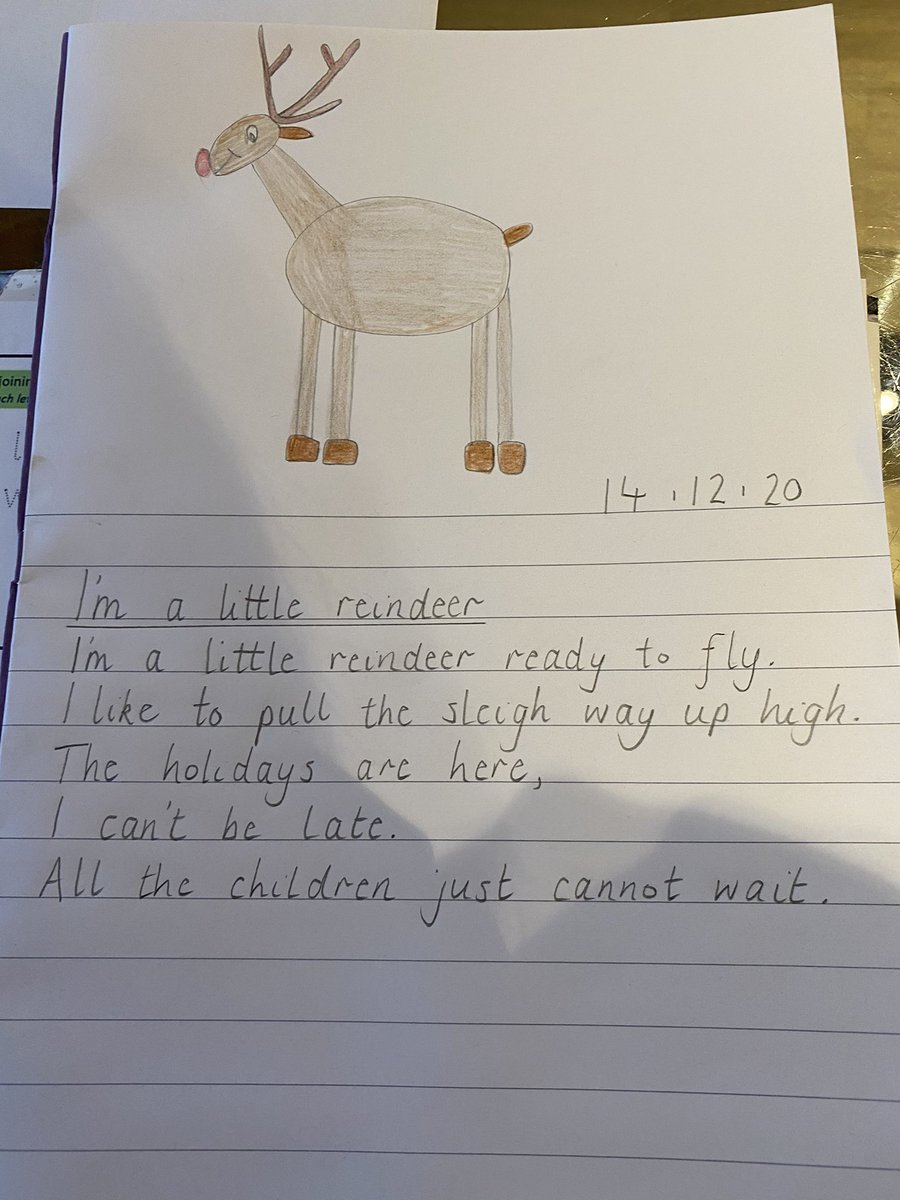 14.12.20
I'm a little reindeer
I'm a little reindeer ready to fly.
I like to pull the sleigh way up high.
The holidays are here,
I can't be late.
All the children just cannot wait.